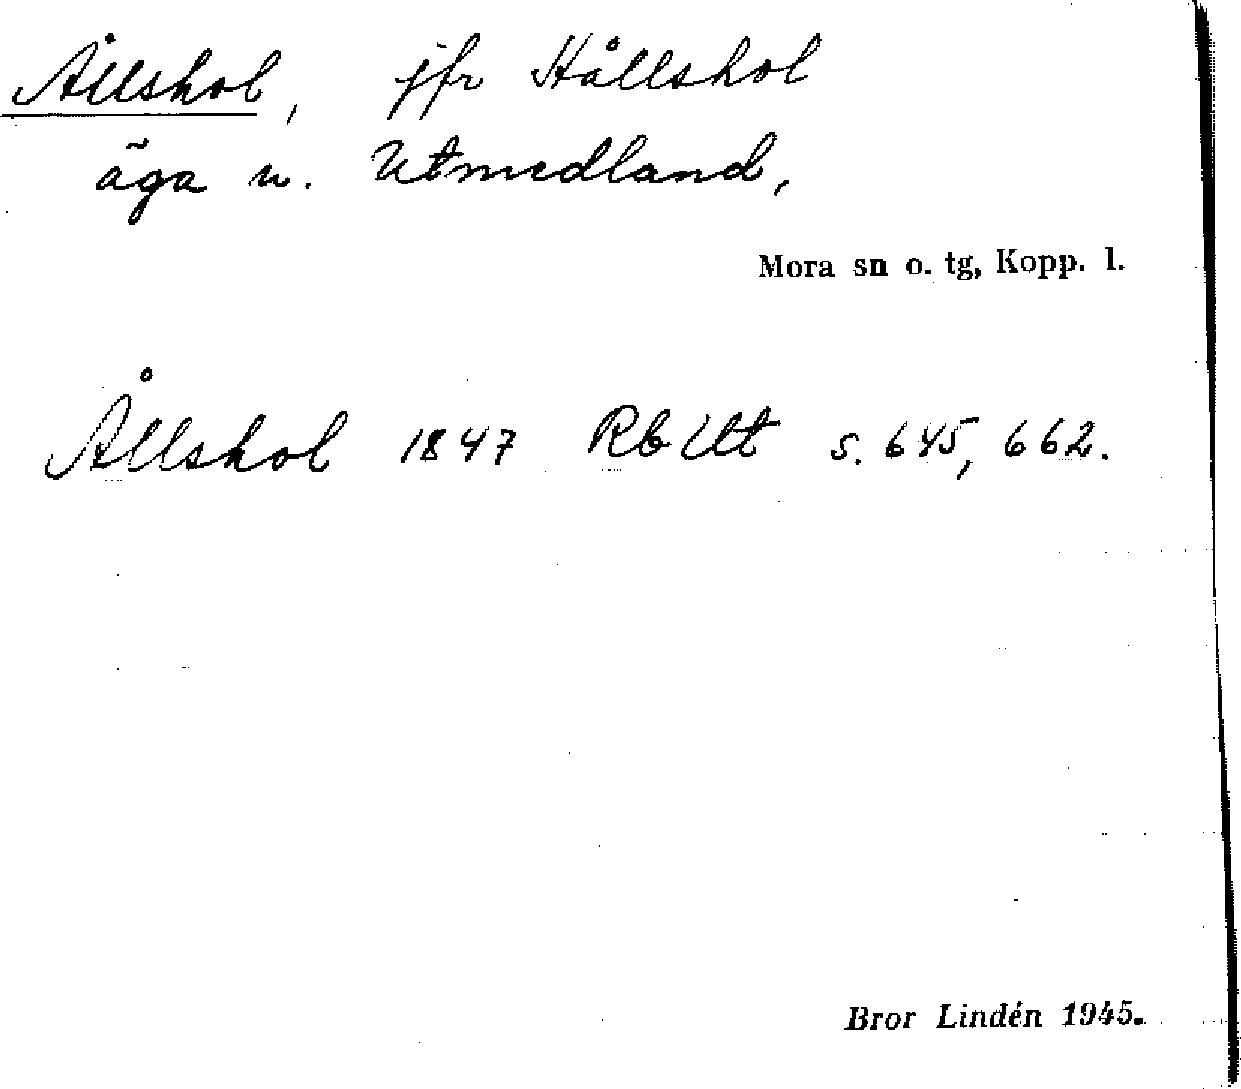 Ållshol, jfr Hållshol
äga u. Utmedland,
Mora sn o. tg, Kopp. l.
Ållshol 1847 Rb Ut s. 645, 662.
Bror Lindén 1945.